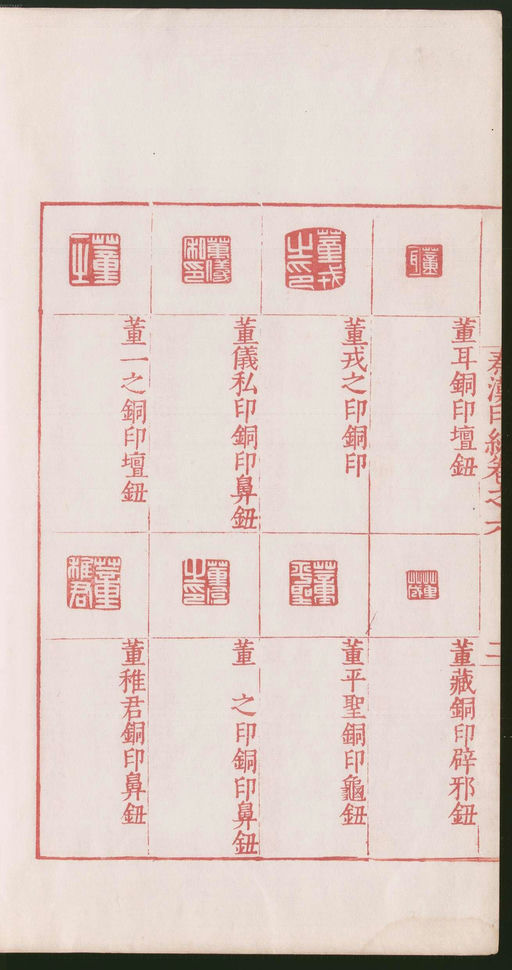 秦漢印統卷之六
三
董耳銅印壇鈕
董戎之印銅印
董儀私印銅印鼻鈕
董一之銅印壇鈕
董藏銅印辟邪鈕
董平聖銅印龜鈕
董 之印銅印鼻鈕
董稚君銅印鼻鈕